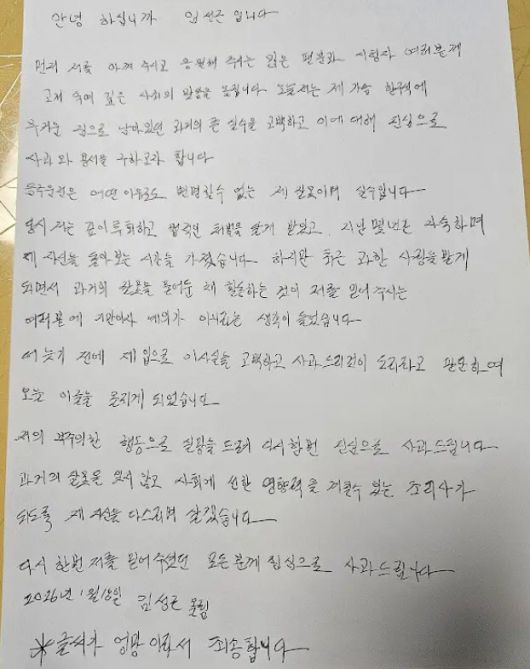 안녕 하십니까 임성근 입니다
먼저 저를 아껴 주시고 응원해 주시는 많은 팬분과 시청자 여러분께
고개 숙여 깊은 사죄의 말씀을 올립니다 오늘 저는 제 가슴 한구석에
무거운 짐으로 남아있던 과거의 큰 실수를 고백하고 이에 대해 진심으로
사과와 용서를 구하고자 합니다
음주운전은 어떤 이유로도 변명할수 없는 제 잘못이며 실수입니다
당시 저는 깊이 후회하고 법적인 처벌을 달게 받았고, 지난 몇년간 자숙하며
제 자신을 돌아보는 시간을 가졌습니다 하지만 최근 과한 사랑을 받게
되면서 과거의 잘못을 묻어둔 채 활동하는 것이 저를 믿어 주시는
여러분께 기만이자 예의가 아니라는 생각이 들었습니다
더 늦기 전에 제 입으로 이사실을 고백하고 사과드리는것이 도리라고 판단하여
오늘 이글을 올리게 되었습니다
저의 부주의한 행동으로 실망을 드려 다시한번 진심으로 사과드립니다
과거의 잘못을 잊지 않고 사회에 선한 영향력을 끼칠수 있는 조리사가
되도록 제 자신을 다스리며 살겠습니다
다시 한번 저를 믿어주셨던 모든 분께 진심으로 사과드립니다
2026년 1월 18일 임성근 올림
*글씨가 엉망이라서 죄송합니다